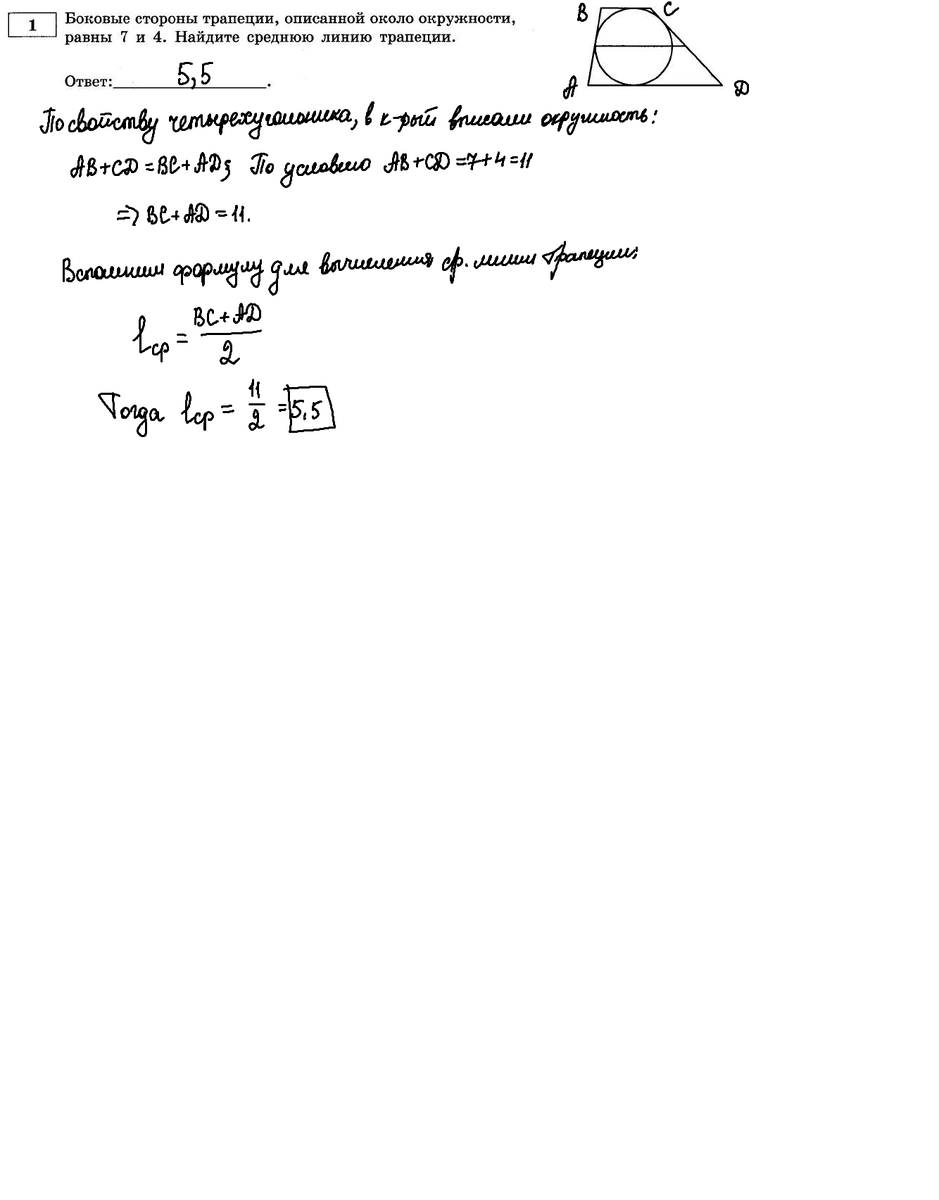 1 Боковые стороны трапеции, описанной около окружности,
равны 7 и 4. Найдите среднюю линию трапеции.
Ответ: 5,5.
B C
A D
По свойству четырехугольника, в к-рый вписали окружность:
AB+CD=BC+AD; По условию AB+CD=7+4=11
=> BC+AD=11.
Вспомним формулу для вычисления ср. линии трапеции:
lср = BC+AD / 2
Тогда lср = 11/2 = 5,5